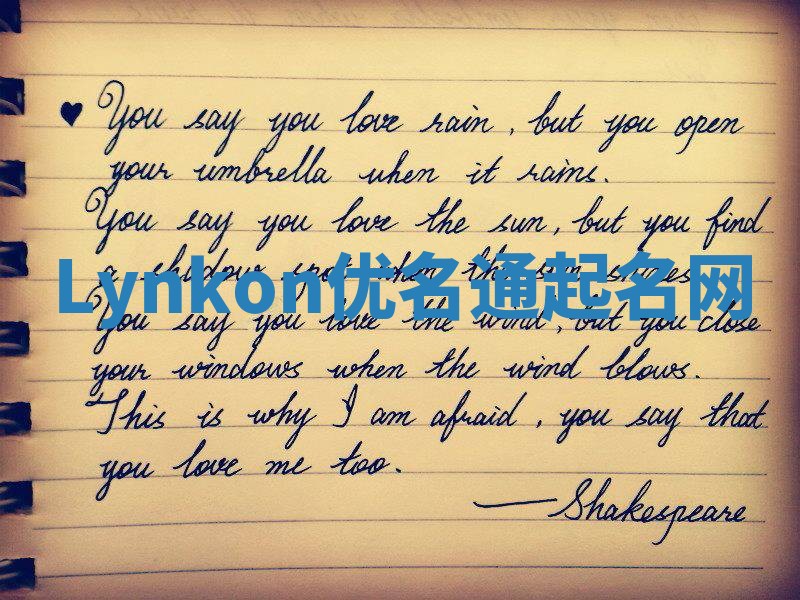 ♥ You say you love rain, but you open
your umbrella when it rains.
You say you love the sun, but you find
a shadow spot when the sun shines.
Lynkon优名通起名网
You say you love the wind, but you close
your windows when the wind blows.
This is why I am afraid, you say that
you love me too.
— Shakespeare